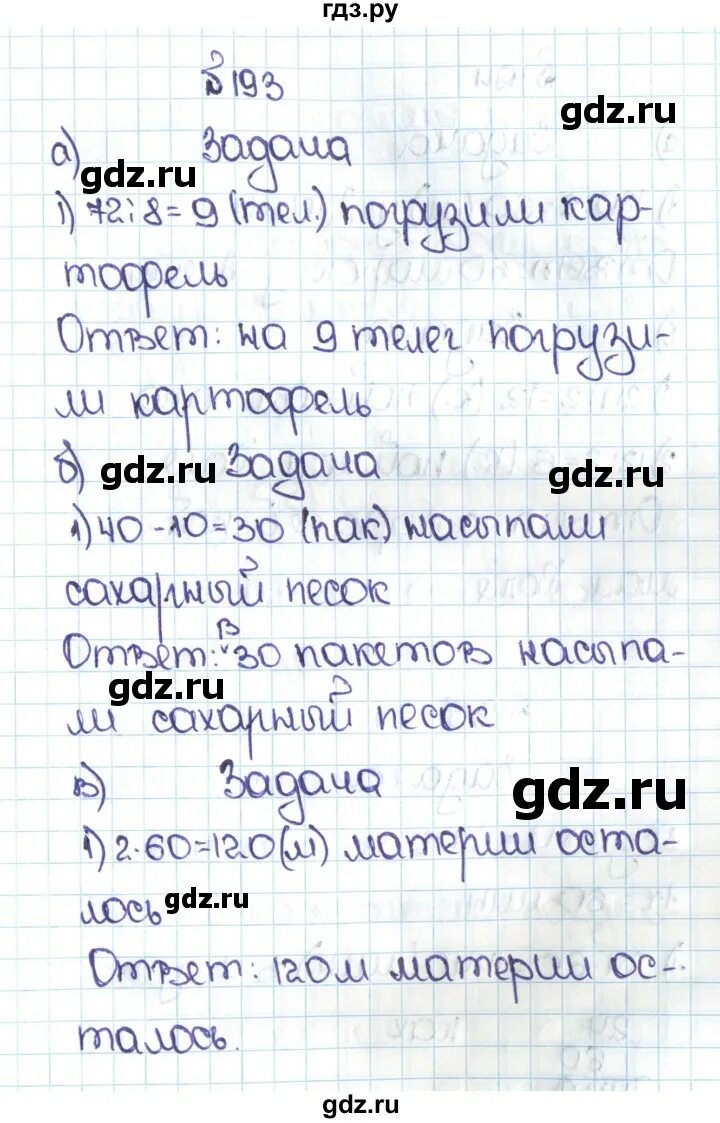 гдз.ру
№193
gdz.ru
а) Задача
gdz.ru
1) 72:8=9 (тел.) погрузили кар-
тофель
Ответ: на 9 телег погрузи-
ли картофель
б) gdz.ru Задача gdz.ru
1) 40-10=30 (пак) насыпали
сахарный песок
Ответ: в 30 пакетов насыпа-
gdz.ru
ли сахарный песок
в) Задача
gdz.ru
1) 2·60=120(м) материи оста-
лось gdz.ru
Ответ: 120м материи ос-
талось.
gdz.ru